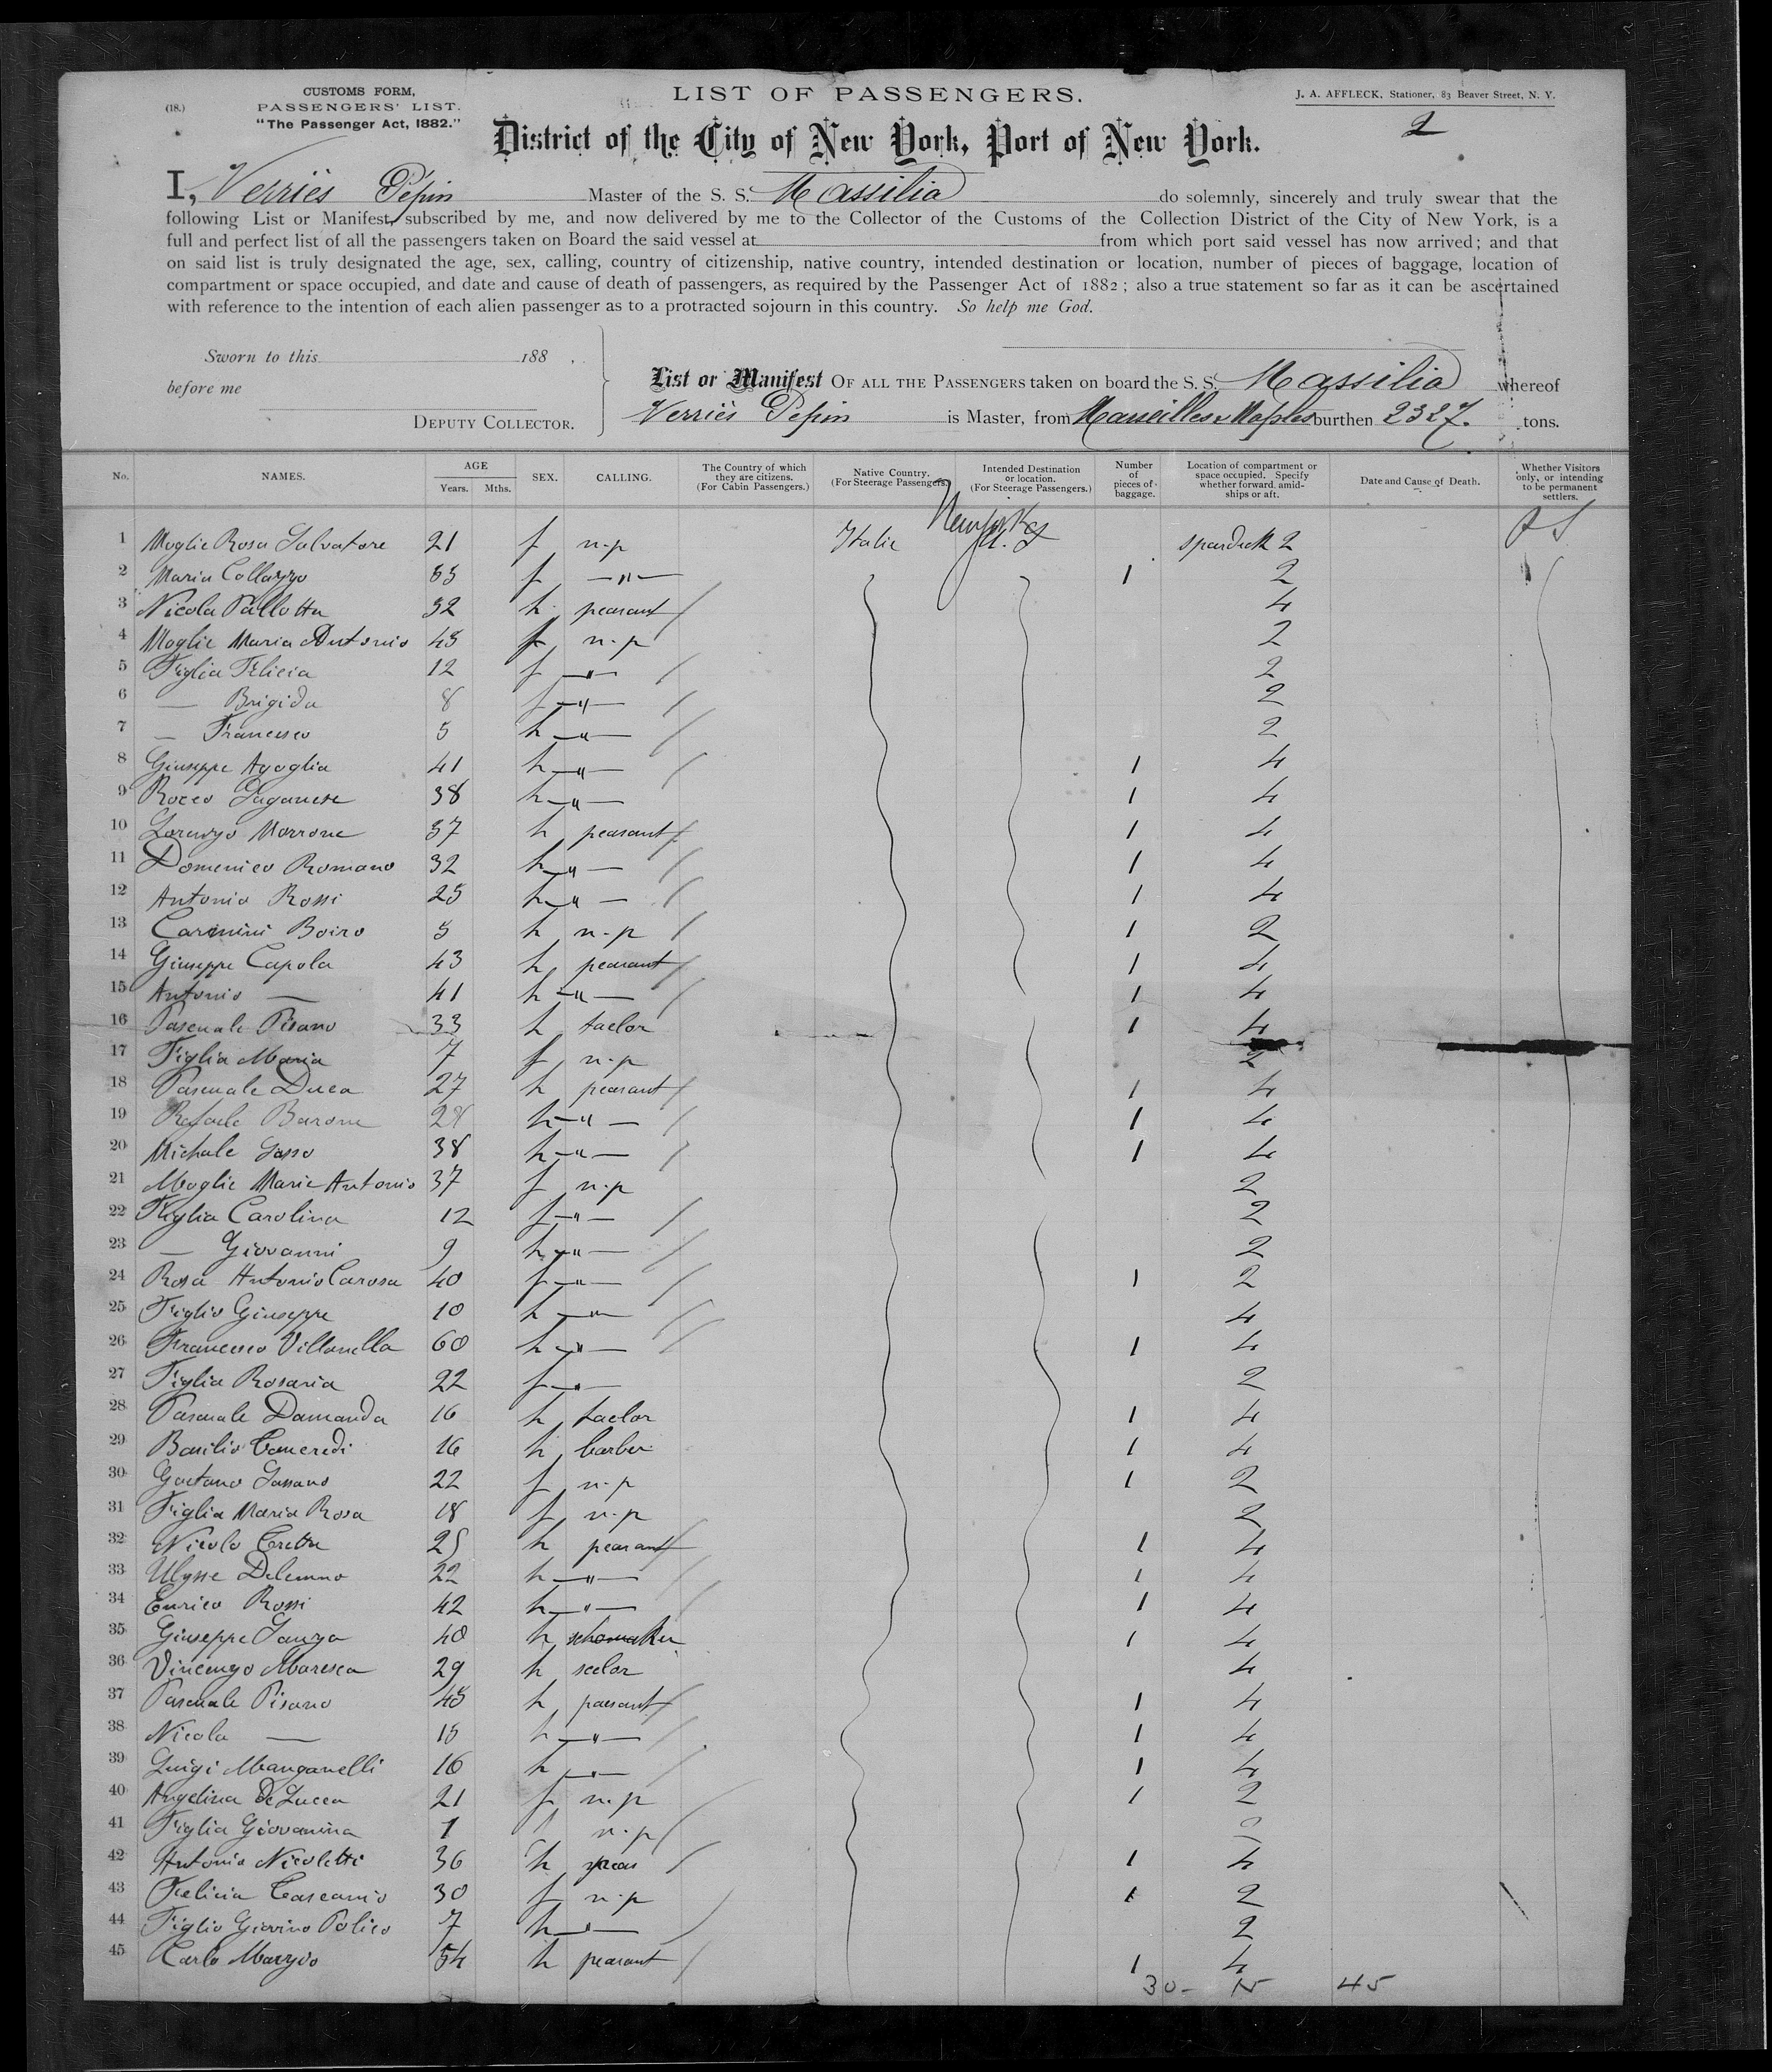 (18.)
CUSTOMS FORM,
PASSENGERS' LIST.
"The Passenger Act, 1882."
LIST OF PASSENGERS.
J. A. AFFLECK, Stationer, 83 Beaver Street, N. Y.
2
District of the City of New York, Port of New York.
I, Verriès Pépin Master of the S. S. Massilia do solemnly, sincerely and truly swear that the
following List or Manifest, subscribed by me, and now delivered by me to the Collector of the Customs of the Collection District of the City of New York, is a
full and perfect list of all the passengers taken on Board the said vessel at from which port said vessel has now arrived; and that
on said list is truly designated the age, sex, calling, country of citizenship, native country, intended destination or location, number of pieces of baggage, location of
compartment or space occupied, and date and cause of death of passengers, as required by the Passenger Act of 1882; also a true statement so far as it can be ascertained
with reference to the intention of each alien passenger as to a protracted sojourn in this country. So help me God.
Sworn to this 188 .
before me
DEPUTY COLLECTOR.
List or Manifest OF ALL THE PASSENGERS taken on board the S. S. Massilia whereof
Verriès Pépin is Master, from Marseilles & Naples burthen 2327. tons.
No. NAMES. AGE Years. Mths. SEX. CALLING. The Country of which they are citizens. (For Cabin Passengers.) Native Country. (For Steerage Passengers.) Intended Destination or location. (For Steerage Passengers.) Number of pieces of baggage. Location of compartment or space occupied. Specify whether forward, amidships or aft. Date and Cause of Death. Whether Visitors only, or intending to be permanent settlers.
1 Moglie Rosa Salvatore 21 f n-p Italie spardeck 2
2 Maria Collazzo f —"— 1 2
3 Nicola Pallotta 32 h peasant 4
4 Moglie Maria Antonio 45 f n-p 2
5 Figlia Felicia 12 f —"— 2
6 — Brigida 8 f —"— 2
7 — Francesco 5 h —"— 2
8 Giuseppe Agoglia 41 h —"— 1 4
9 Rocco Paganese 38 h —"— 1 4
10 Lorenzo Morrone 37 h peasant 1 4
11 Domenico Romano 32 h —"— 1 4
12 Antonio Rossi 25 h —"— 1 4
13 Carmini Boiro 5 h n-p 1 2
14 Giuseppe Capola 43 h peasant 1 4
15 Antonio — 41 h —"— 1 4
16 Pascuale Pisano 33 h taelor 1 4
17 Figlia Maria 7 f n-p 2
18 Pascuale Duca 27 h peasant 1 4
19 Rafaele Barone 28 h —"— 1 4
20 Michale 38 h —"— 1 4
21 Moglie Marie Antonio 37 f n-p 2
22 Figlia Carolina 12 f —"— 2
23 — Giovanni 9 h —"— 2
24 Rosa Antonio Carosa 40 f —"— 1 2
25 Figlio Giuseppe 10 h —"— 4
26 Francesco Villanella 60 h —"— 1 4
27 Figlia Rosaria 22 f —"— 2
28 Pascuale Damanda 16 h taelor 1 4
29 Basilio 16 h barber 1 4
30 Gaetano Sassano 22 f n-p 1 2
31 Figlia Maria Rosa 18 f n-p 2
32 Nicolo 25 h peasant 1 4
33 Ulysse 22 h —"— 1 4
34 Enrico Rossi 42 h —"— 1 4
35 Giuseppe 40 h schomaker 1 4
36 Vincenzo Maresca 29 h seelor 4
37 Pascuale Pisano 45 h paesant 1 4
38 Nicola — 15 h —"— 1 4
39 Luigi Manganelli 16 h —"— 1 4
40 Angelina De Lucca 21 f n-p 1 2
41 Figlia Giovanina 1 n-p
42 Antonio Nicoletti 36 h 1 4
43 Felicia Cascanio 30 f n-p 1 2
44 Figlio Giovino Polico 7 h —"— 2
45 Carlo Mazzio 54 h peasant 1 4
30- 15 45